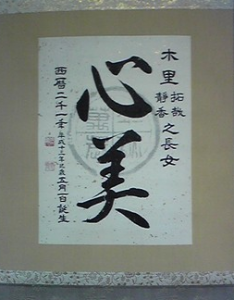 木里 拓哉 静香 之長女
心美
西暦二千一年 平成十三年 五月一日誕生